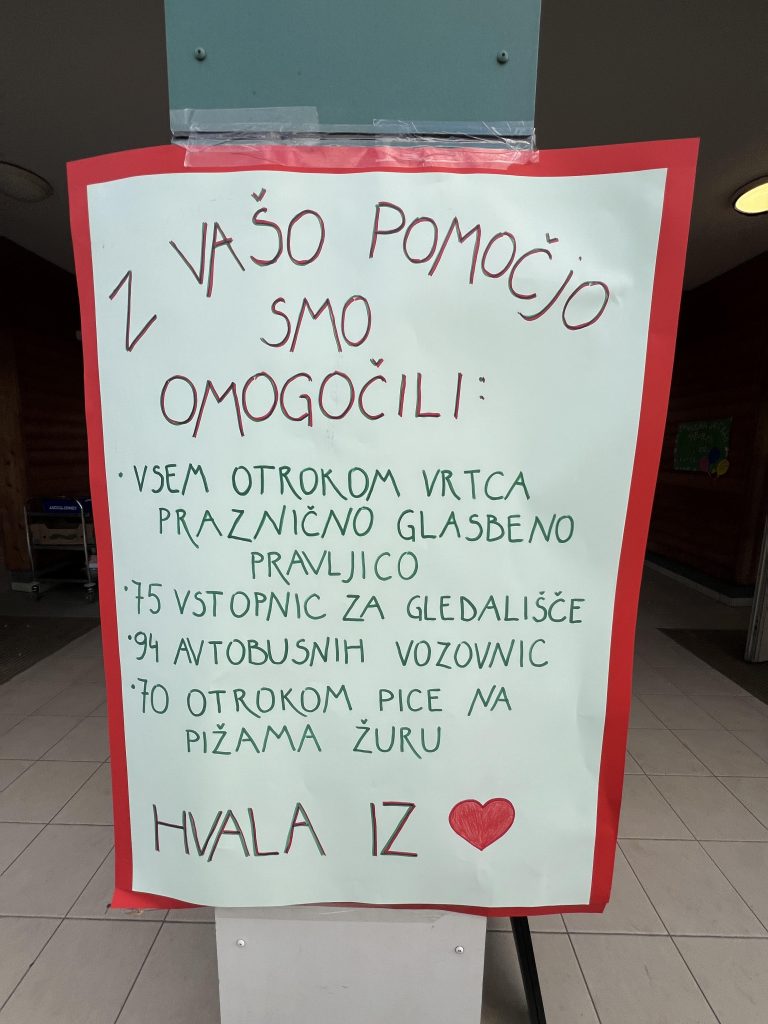 Z VAŠO POMOČJO
SMO
OMOGOČILI:
• VSEM OTROKOM VRTCA
PRAZNIČNO GLASBENO
PRAVLJICO
• 75 VSTOPNIC ZA GLEDALIŠČE
• 94 AVTOBUSNIH VOZOVNIC
• 70 OTROKOM PICE NA
PIŽAMA ŽURU
HVALA IZ ❤